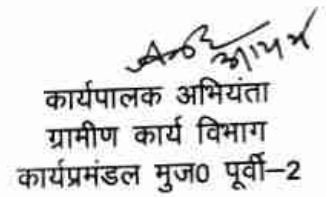 कार्यपालक अभियंता
ग्रामीण कार्य विभाग
कार्यप्रमंडल मुज0 पूर्वी–2